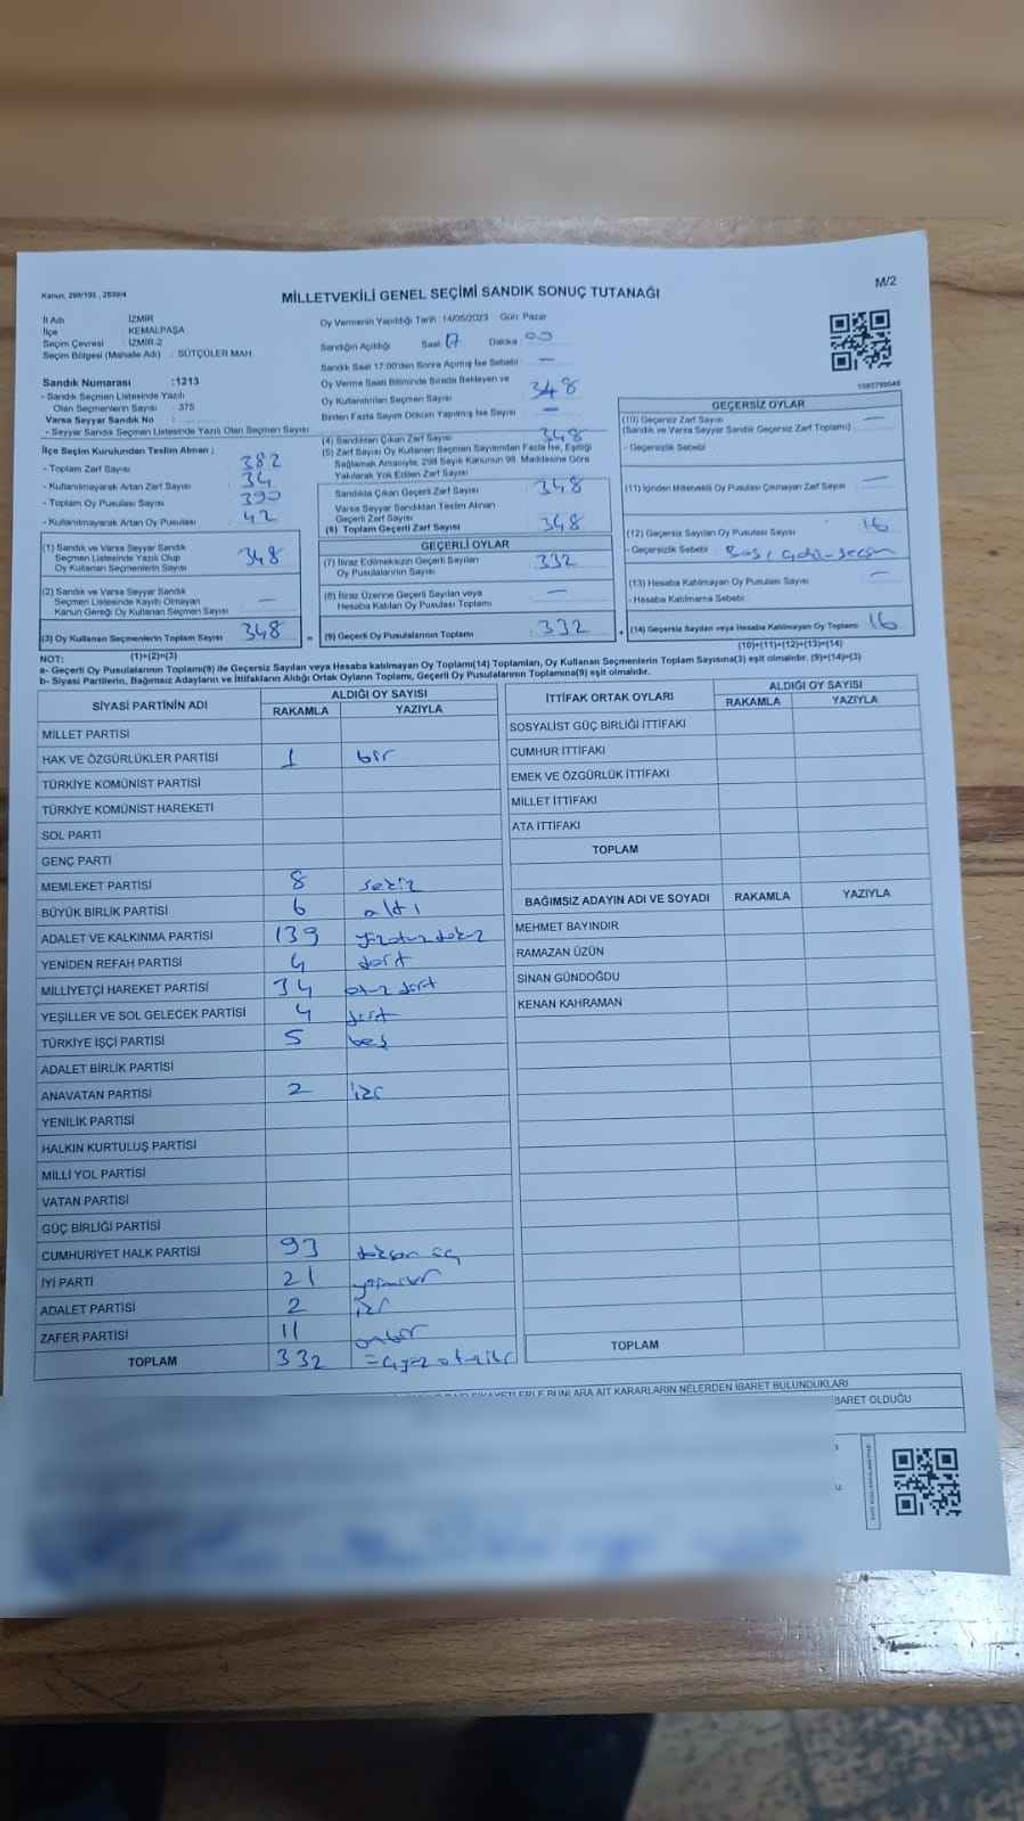 Kanun: 298/105, 2839/4
M/2
MİLLETVEKİLİ GENEL SEÇİMİ SANDIK SONUÇ TUTANAĞI
İl Adı : İZMİR
İlçe : KEMALPAŞA
Seçim Çevresi : İZMİR-2
Seçim Bölgesi (Mahalle Adı) : SÜTÇÜLER MAH.
Sandık Numarası :1213
- Sandık Seçmen Listesinde Yazılı
Olan Seçmenlerin Sayısı : 375
Varsa Seyyar Sandık No :
- Seyyar Sandık Seçmen Listesinde Yazılı Olan Seçmen Sayısı
İlçe Seçim Kurulundan Teslim Alınan :
- Toplam Zarf Sayısı 382
- Kullanılmayarak Artan Zarf Sayısı 34
- Toplam Oy Pusulası Sayısı 390
- Kullanılmayarak Artan Oy Pusulası 42
(1) Sandık ve Varsa Seyyar Sandık
Seçmen Listesinde Yazılı Olup
Oy Kullanan Seçmenlerin Sayısı 348
(2) Sandık ve Varsa Seyyar Sandık
Seçmen Listesinde Kayıtlı Olmayan
Kanun Gereği Oy Kullanan Seçmen Sayısı —
(3) Oy Kullanan Seçmenlerin Toplam Sayısı 348
(1)+(2)=(3)
Oy Vermenin Yapıldığı Tarih :14/05/2023 Gün: Pazar
Sandığın Açıldığı Saat 17 Dakika 00
Sandık Saat 17:00'den Sonra Açılmış İse Sebebi : —
Oy Verme Saati Bitiminde Sırada Bekleyen ve
Oy Kullandırılan Seçmen Sayısı 348
Birden Fazla Sayım Döküm Yapılmış İse Sayısı —
(4) Sandıktan Çıkan Zarf Sayısı 348
(5) Zarf Sayısı Oy Kullanan Seçmen Sayısından Fazla İse, Eşitliği
Sağlamak Amacıyla, 298 Sayılı Kanunun 98. Maddesine Göre
Yakılarak Yok Edilen Zarf Sayısı
Sandıkta Çıkan Geçerli Zarf Sayısı 348
Varsa Seyyar Sandıktan Teslim Alınan
Geçerli Zarf Sayısı
(6) Toplam Geçerli Zarf Sayısı 348
GEÇERLİ OYLAR
(7) İtiraz Edilmeksizin Geçerli Sayılan
Oy Pusulalarının Sayısı 332
(8) İtiraz Üzerine Geçerli Sayılan veya
Hesaba Katılan Oy Pusulası Toplamı —
= (9) Geçerli Oy Pusulalarının Toplamı 332
GEÇERSİZ OYLAR
(10) Geçersiz Zarf Sayısı —
(Sandık ve Varsa Seyyar Sandık Geçersiz Zarf Toplamı)
- Geçersizlik Sebebi
(11) İçinden Milletvekili Oy Pusulası Çıkmayan Zarf Sayısı —
(12) Geçersiz Sayılan Oy Pusulası Sayısı 16
- Geçersizlik Sebebi
(13) Hesaba Katılmayan Oy Pusulası Sayısı —
- Hesaba Katılmama Sebebi:
+ (14) Geçersiz Sayılan veya Hesaba Katılmayan Oy Toplamı 16
(10)+(11)+(12)+(13)=(14)
NOT:
a- Geçerli Oy Pusulalarının Toplamı(9) ile Geçersiz Sayılan veya Hesaba katılmayan Oy Toplamı(14) Toplamları, Oy Kullanan Seçmenlerin Toplam Sayısına(3) eşit olmalıdır. (9)+(14)=(3)
b- Siyasi Partilerin, Bağımsız Adayların ve İttifakların Aldığı Ortak Oyların Toplamı, Geçerli Oy Pusulalarının Toplamına(9) eşit olmalıdır.
SİYASİ PARTİNİN ADI ALDIĞI OY SAYISI
RAKAMLA YAZIYLA
MİLLET PARTİSİ
HAK VE ÖZGÜRLÜKLER PARTİSİ 1 bir
TÜRKİYE KOMÜNİST PARTİSİ
TÜRKİYE KOMÜNİST HAREKETİ
SOL PARTİ
GENÇ PARTİ
MEMLEKET PARTİSİ 8 sekiz
BÜYÜK BİRLİK PARTİSİ 6 altı
ADALET VE KALKINMA PARTİSİ 139 yüzotuzdokuz
YENİDEN REFAH PARTİSİ 4 dört
MİLLİYETÇİ HAREKET PARTİSİ 34 otuz dört
YEŞİLLER VE SOL GELECEK PARTİSİ 4 dört
TÜRKİYE İŞÇİ PARTİSİ 5 beş
ADALET BİRLİK PARTİSİ
ANAVATAN PARTİSİ 2 iki
YENİLİK PARTİSİ
HALKIN KURTULUŞ PARTİSİ
MİLLİ YOL PARTİSİ
VATAN PARTİSİ
GÜÇ BİRLİĞİ PARTİSİ
CUMHURİYET HALK PARTİSİ 93 doksan üç
İYİ PARTİ 21 yirmibir
ADALET PARTİSİ 2 iki
ZAFER PARTİSİ 11 onbir
TOPLAM 332 üçyüz otuziki
İTTİFAK ORTAK OYLARI ALDIĞI OY SAYISI
RAKAMLA YAZIYLA
SOSYALİST GÜÇ BİRLİĞİ İTTİFAKI
CUMHUR İTTİFAKI
EMEK VE ÖZGÜRLÜK İTTİFAKI
MİLLET İTTİFAKI
ATA İTTİFAKI
TOPLAM
BAĞIMSIZ ADAYIN ADI VE SOYADI RAKAMLA YAZIYLA
MEHMET BAYINDIR
RAMAZAN ÜZÜN
SİNAN GÜNDOĞDU
KENAN KAHRAMAN
TOPLAM
BUNLARA AİT KARARLARIN NELERDEN İBARET BULUNDUKLARI
İBARET OLDUĞU